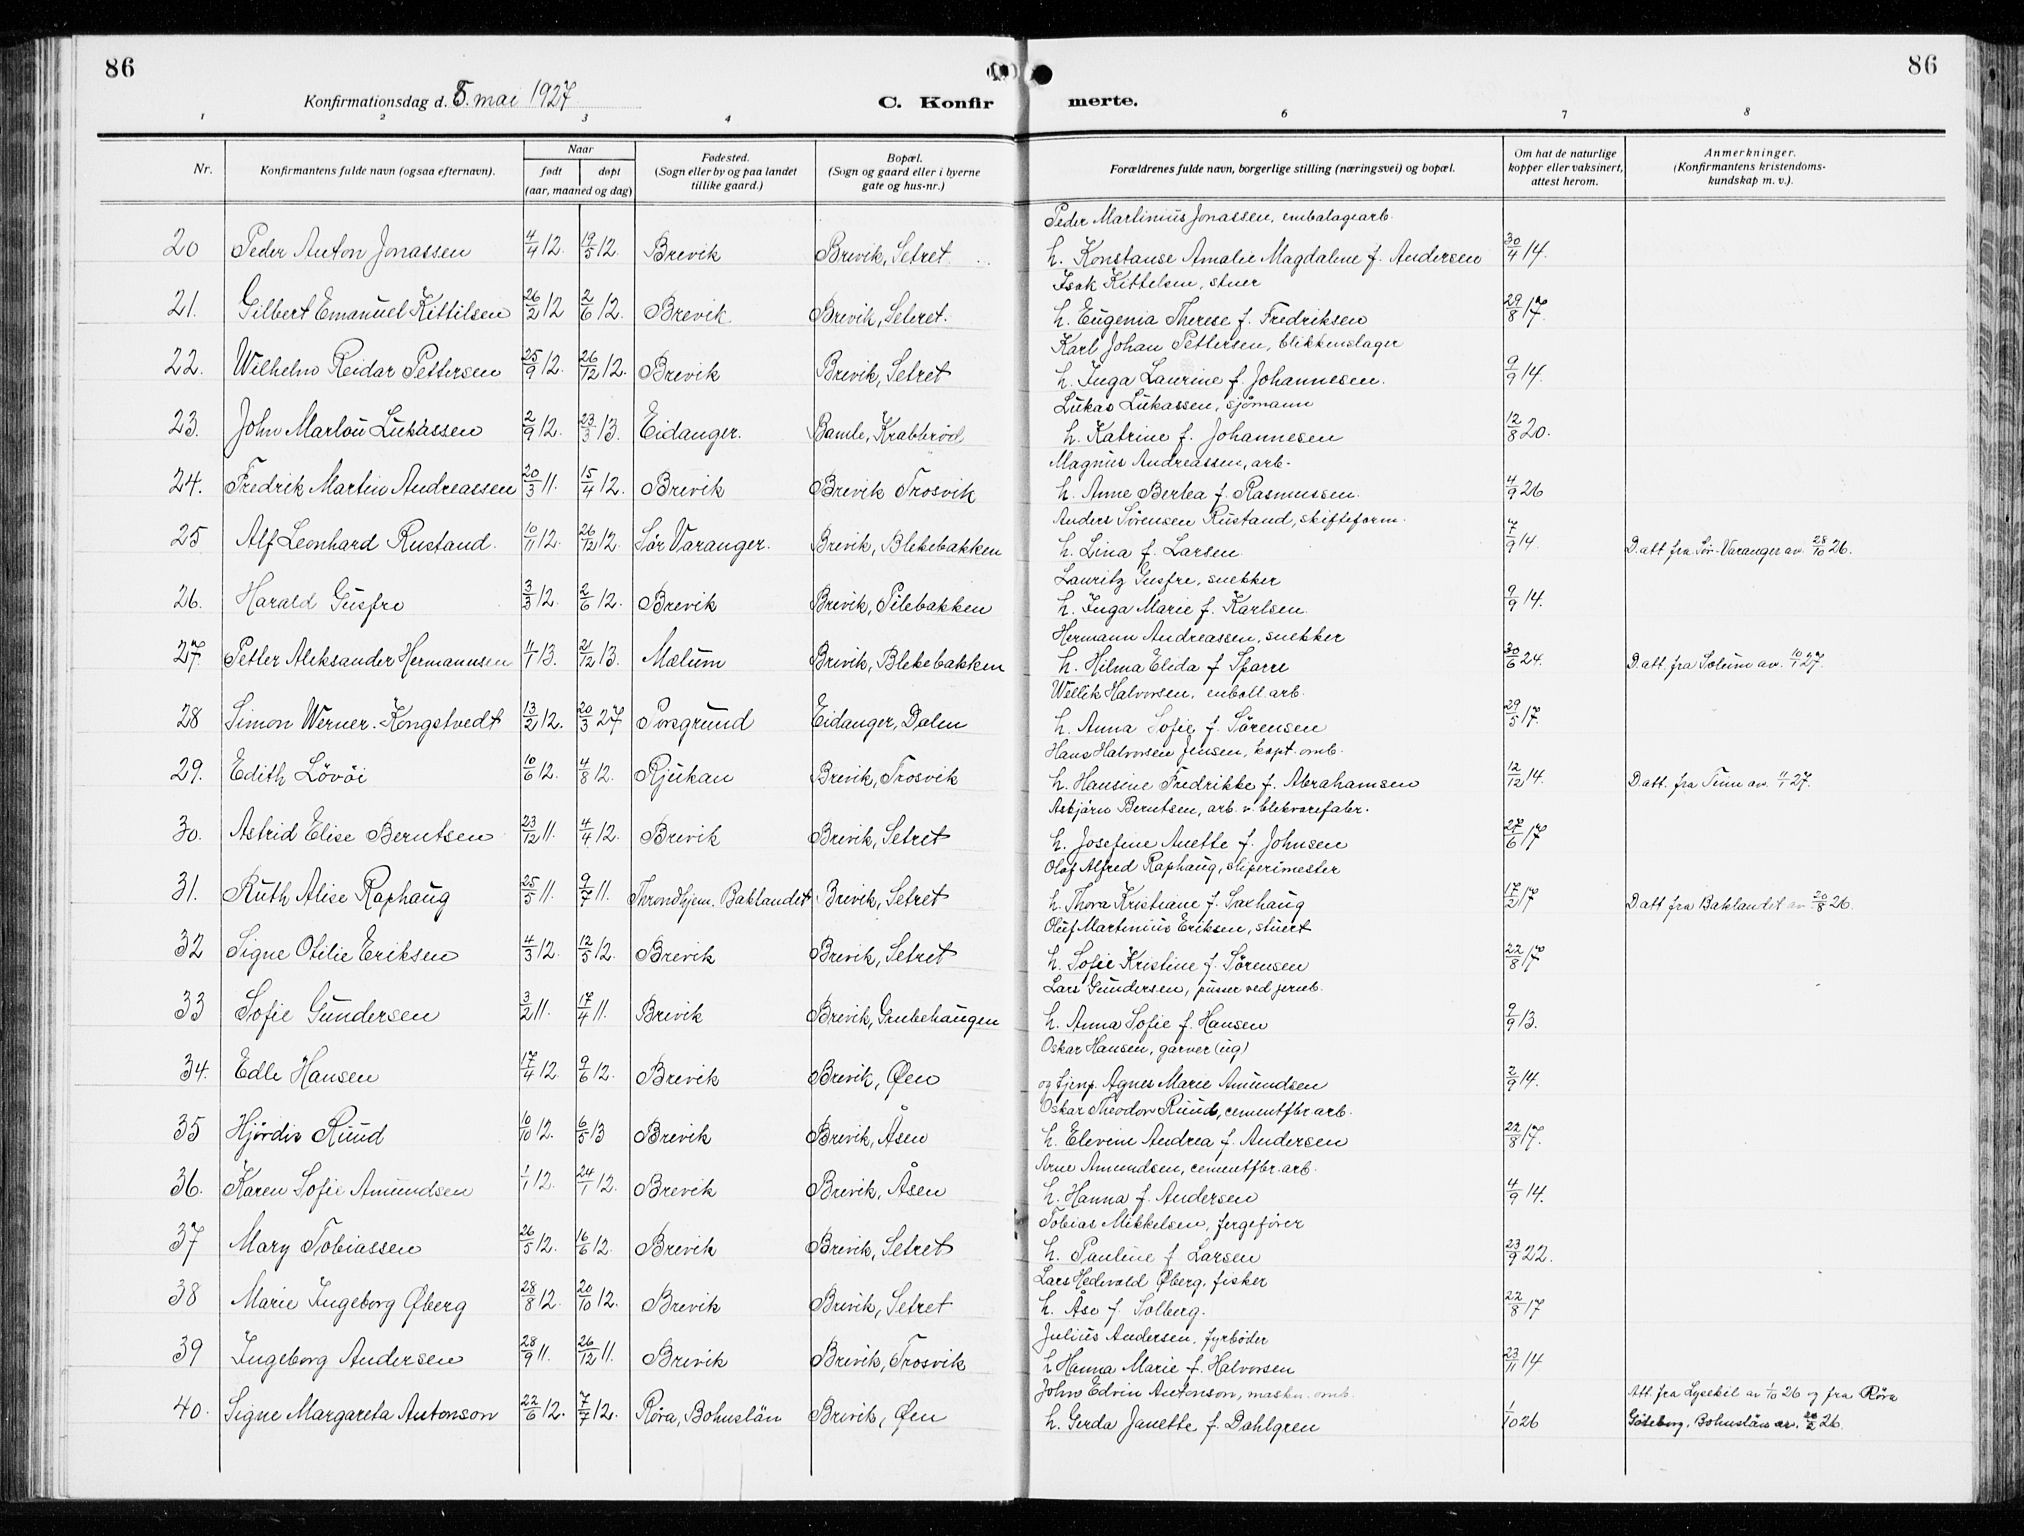 86
86
Konfirmationsdag d. 8. mai 1927.
C. Konfirmerte.
1 2 3 4 6 7 8
Nr.
Konfirmantens fulde navn (ogsaa efternavn).
Naar
født
døpt
(aar, maaned og dag)
Fødested.
(Sogn eller by og paa landet
tillike gaard.)
Bopæl.
(Sogn og gaard eller i byerne
gate og hus-nr.)
Forældrenes fulde navn, borgerlige stilling (næringsvei) og bopæl.
Om hat de naturlige
kopper eller vaksinert,
attest herom.
Anmerkninger.
(Konfirmantens kristendoms-
kundskap m. v.).
Peder Martinius Jonassen, embalagearb.
20 Peder Anton Jonassen 4/4 12. 19/5 12. Brevik Brevik, Setret. h. Konstanse Amalie Magdalene f. Andersen 30/4 14.
Isak Kittelsen, stuer
21. Gilbert Emanuel Kittilsen 26/2 12 2/6 12. Brevik Brevik, Setret. h. Eugenia Therese f. Fredriksen 29/8 17.
Karl Johan Pettersen, blikkenslager
22. Wilhelm Reidar Pettersen 25/9 12. 26/12 12. Brevik Brevik, Setret h. Inga Laurine f. Johannesen. 9/9 14.
Lukas Lukassen, sjømann
23. John Marlou Lukassen 2/9 12. 23/3 13. Eidanger. Bamle, Krabberød h. Katrine f. Johannesen 12/8 20.
Magnus Andreassen, arb.
24. Fredrik Martin Andreassen 20/3 11. 15/4 12. Brevik Brevik Trosvik h. Anne Bertea f. Rasmussen. 4/9 26
Anders Sørensen Rustand, skifteform.
25 Alf Leonhard Rustand. 10/11 12. 26/12 12. Sør Varanger. Brevik, Blekebakken h. Lina f. Larsen. 7/9 14. D. att fra Sør-Varanger av. 28/10 26.
Lauritz Gusfre, snekker
26. Harald Gusfre 3/3 12. 2/6 12. Brevik Brevik, Pilebakken h. Inga Marie f. Karlsen. 9/9 14.
Hermann Andreassen, snekker
27. Petter Aleksander Hermannsen 4/1 13. 21/12 13. Mælum Brevik, Blekebakken h. Hilma Elida f. Sparre 30/6 24. D. att. fra Solum av. 10/1 27.
Wellik Halvorsen, emball. arb.
28 Simon Werner Kongstvedt 13/2 12. 20/3 27 Porsgrund Eidanger, Dalen h. Anna Sofie f. Sørensen 29/5 17.
Hans Halvorsen Jensen, kapt. omb.
29. Edith Lövöi 10/6 12. 4/8 12. Rjukan Brevik, Trosvik h. Hansine Fredrikke f. Abrahamsen 12/12 14. D. att. fra Tinn av. 11/1 27.
Asbjörn Berntsen, arb. v. blekvarefabr.
30. Astrid Elise Berntsen 23/12 11. 4/4 12. Brevik Brevik, Setret h. Josefine Anette f. Johnsen 27/6 17
Olaf Alfred Raphaug, sliperimester
31. Ruth Alise Raphaug 25/5 11. 9/7 11. Throndhjem. Baklandet Brevik, Setret h. Thora Kristiane f. Saxhaug 17/2 17 D. att fra Baklandet av 20/8 26.
Oluf Martinius Eriksen, stuert
32 Signe Otilie Eriksen 4/3 12. 12/5 12. Brevik Brevik, Setret h. Sofie Kristine f. Sørensen 22/8 17
Lars Gundersen, pusser ved jernb.
33 Sofie Gundersen 3/2 11. 17/4 11. Brevik Brevik, Grubehaugen h. Anna Sofie f. Hansen 9/9 13.
Oskar Hansen, garver (ug)
34. Edle Hansen 17/4 12 9/6 12. Brevik Brevik, Øen og tjenp. Agnes Marie Amundsen 2/9 14.
Oskar Theodor Ruud, cementfbr arb.
35 Hjördis Ruud 10/10 12. 6/5 13 Brevik Brevik, Åsen h. Elevine Andrea f. Andersen 22/8 17.
Arne Amundsen, cementfbr. arb.
36. Karen Sofie Amundsen 1/1 12. 24/1 12. Brevik Brevik, Åsen h. Hanna f. Andersen 4/9 14.
Tobias Mikkelsen, fergefører
37 Mary Tobiassen 26/5 12. 16/6 12. Brevik Brevik, Setret h. Pauline f Larsen 23/9 22.
Lars Hedevold Øberg, fisker
38 Marie Ingeborg Øberg 28/8 12. 20/10 12. Brevik Brevik, Setret h. Åse f. Solberg. 22/8 17
Julius Andersen, fyrbøder
39 Ingeborg Andersen 28/9 11. 26/12 11. Brevik Brevik, Trosvik h Hanna Marie f. Halvorsen 23/11 14
John Edvin Antonson, maskn. omb. Att. fra Lysekil av 1/10 26 og fra Röra
40. Signe Margareta Antonson 22/6 12. 7/7 12. Röra, Bohuslän Brevik, Øen h. Gerda Janette f. Dahlgren 1/10 26 Göteborg, Bohuslän av. 20/2 26.